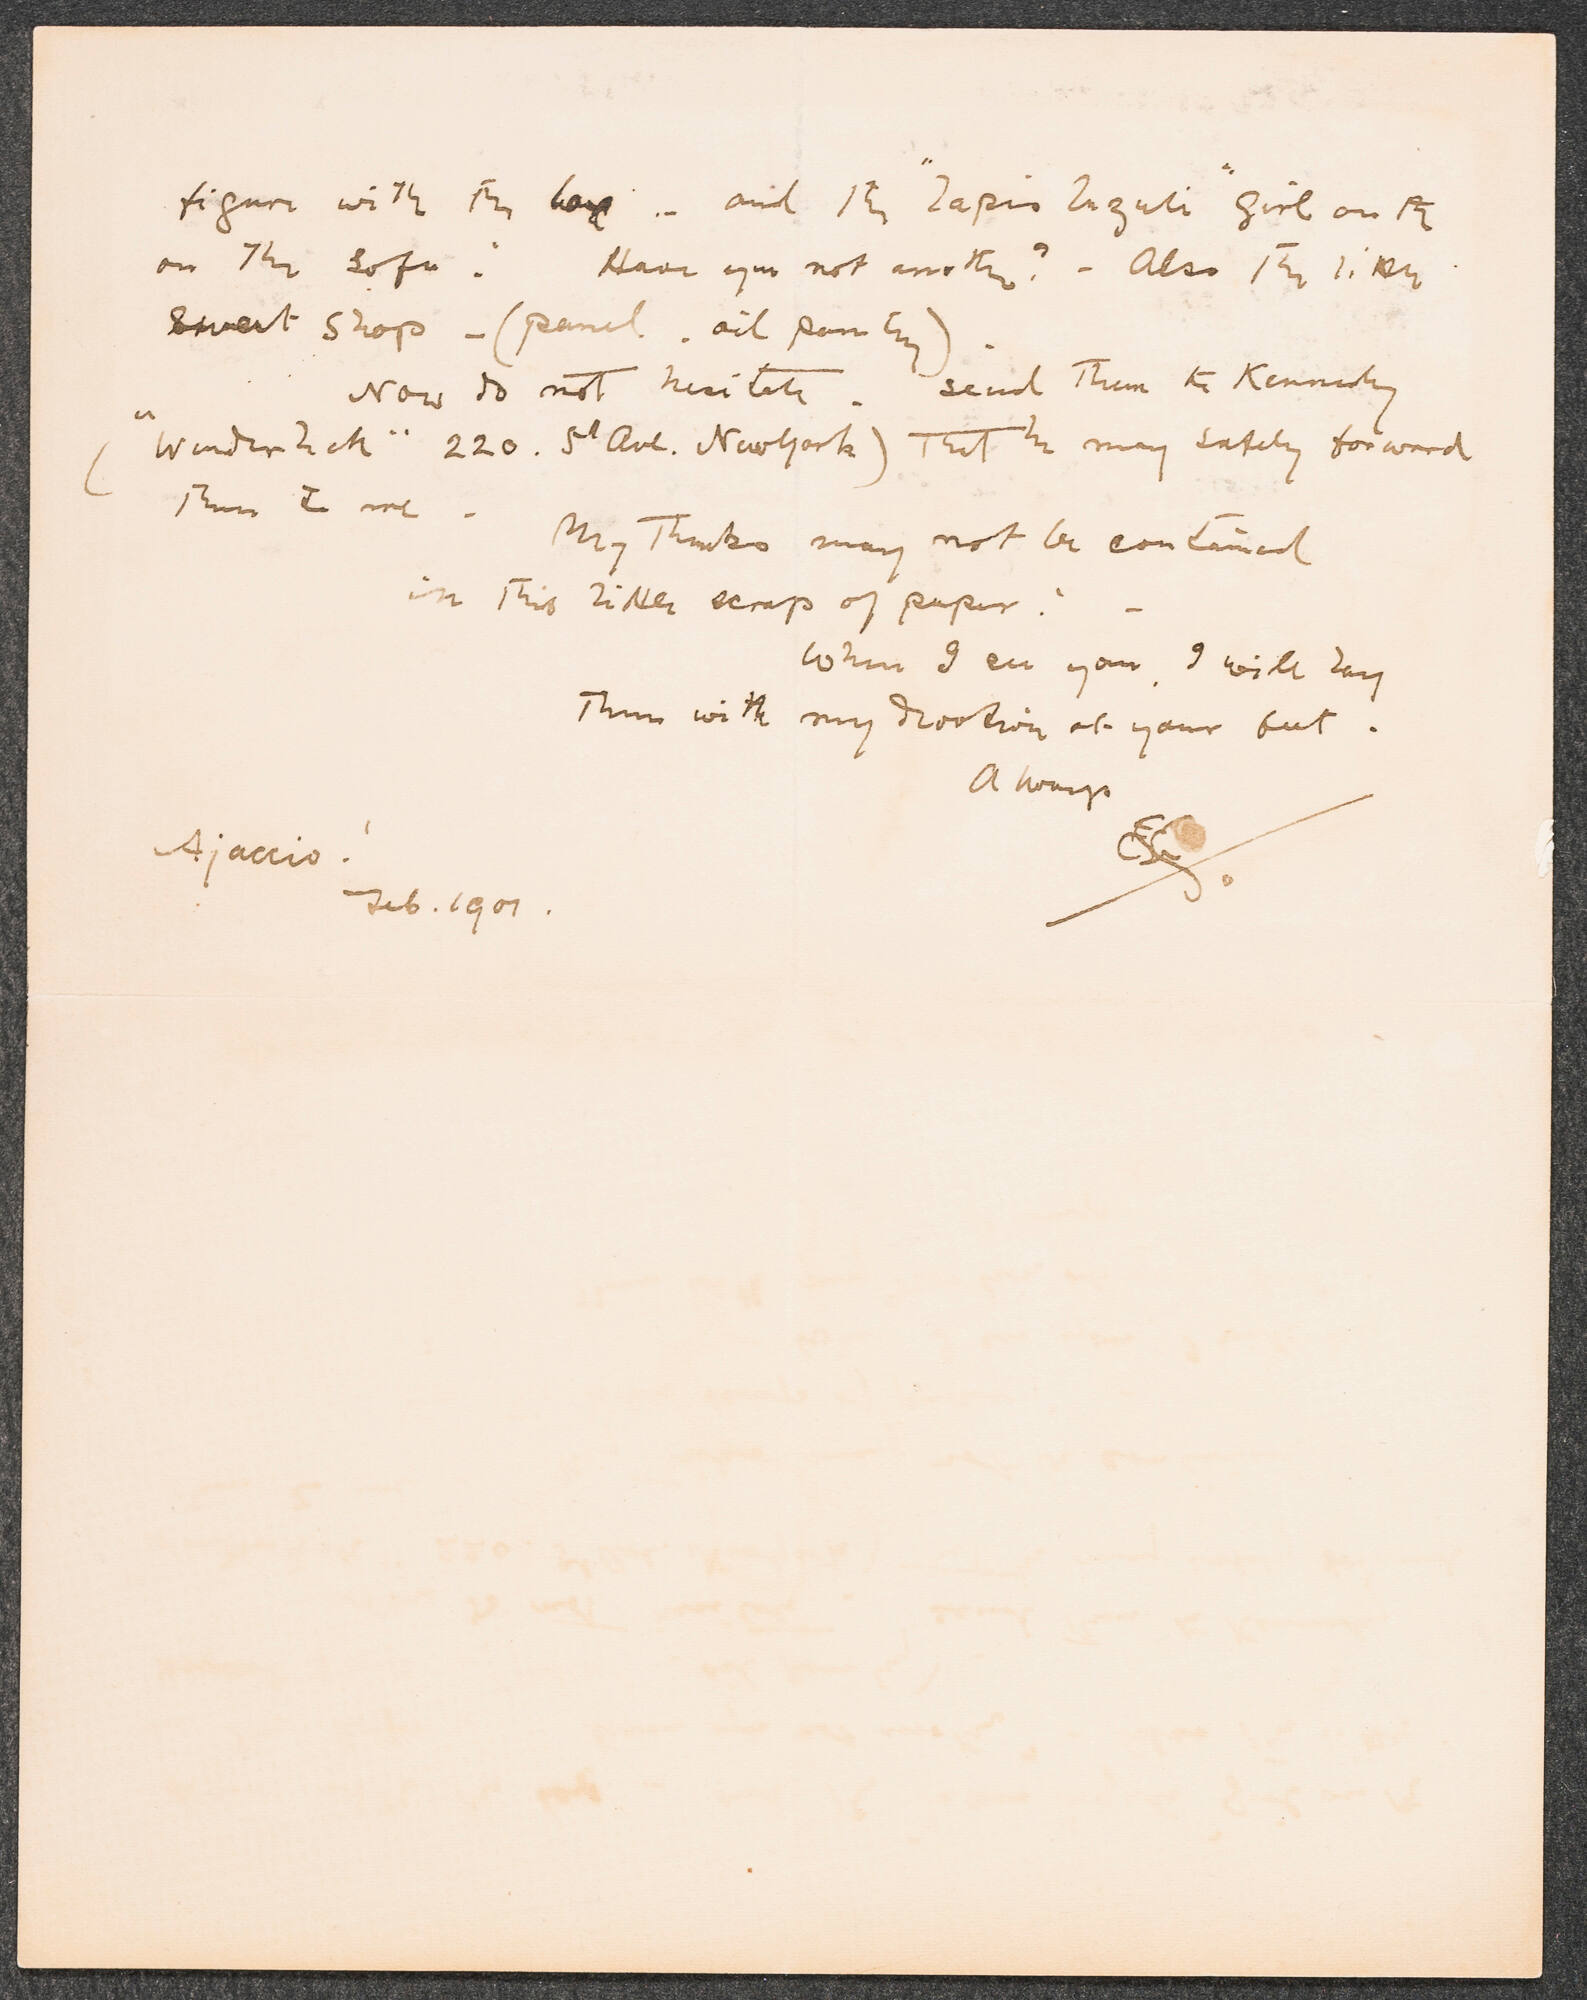 figure with the boy - and the "Lapis Lazuli" Girl on the
on the sofa! Have you not another? - Also the little
Sweet Shop - (panel. oil painting).
Now do not hesitate. send them to Kennedy
("Wunderlich" 220. 5th Ave. New York) that he may safely forward
them to me -
My Thanks may not be contained
in this little scrap of paper! -
When I see you, I will lay
them with my devotion at your feet.
Always
Ajaccio!
Feb. 1901.